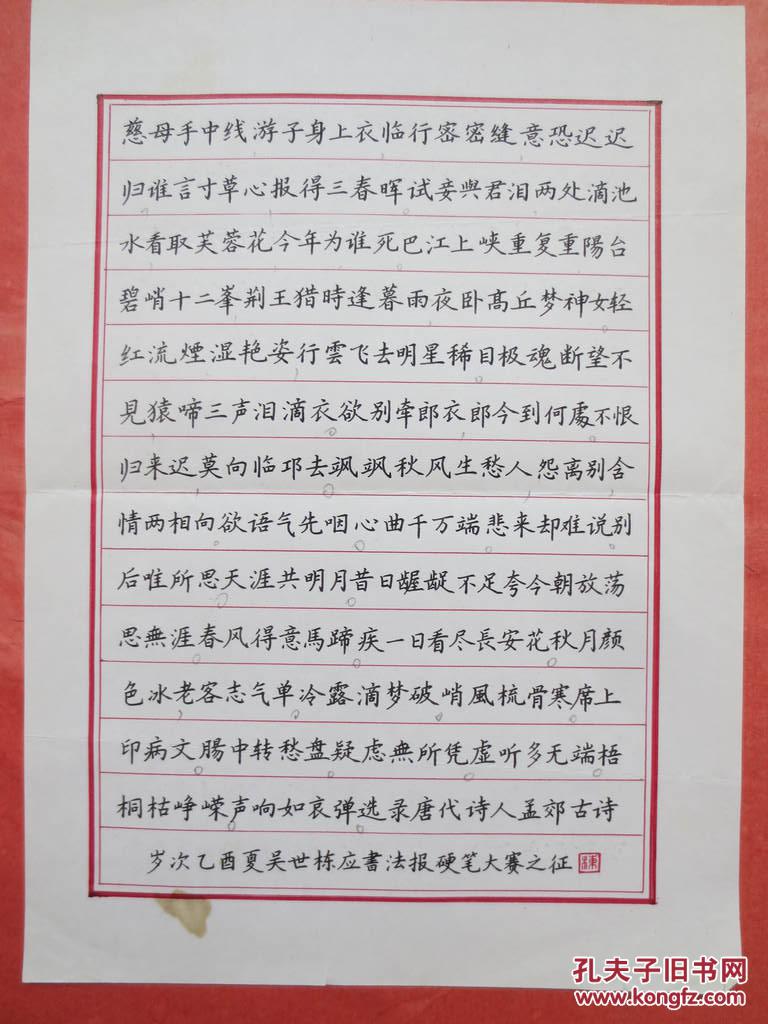 慈母手中线游子身上衣临行密密缝意恐迟迟
归谁言寸草心报得三春晖试妾與君泪两处滴池
水看取芙蓉花今年为谁死巴江上峡重复重陽台
碧峭十二峯荆王猎時逢暮雨夜卧髙丘梦神女轻
红流煙湿艳姿行雲飞去明星稀目极魂断望不
見猿啼三声泪滴衣欲别牵郎衣郎今到何處不恨
归来迟莫向临邛去飒飒秋风生愁人怨离别含
情两相向欲语气先咽心曲千万端悲来却难说别
后唯所思天涯共明月昔日龌龊不足夸今朝放荡
思無涯春风得意馬蹄疾一日看尽長安花秋月颜
色冰老客志气单冷露滴梦破峭風梳骨寒席上
印病文腸中转愁盘疑虑無所凭虚听多无端梧
桐枯峥嵘声响如哀弹选录唐代诗人孟郊古诗
岁次乙酉夏吴世栋应書法报硬笔大赛之征
孔夫子旧书网
www.kongfz.com